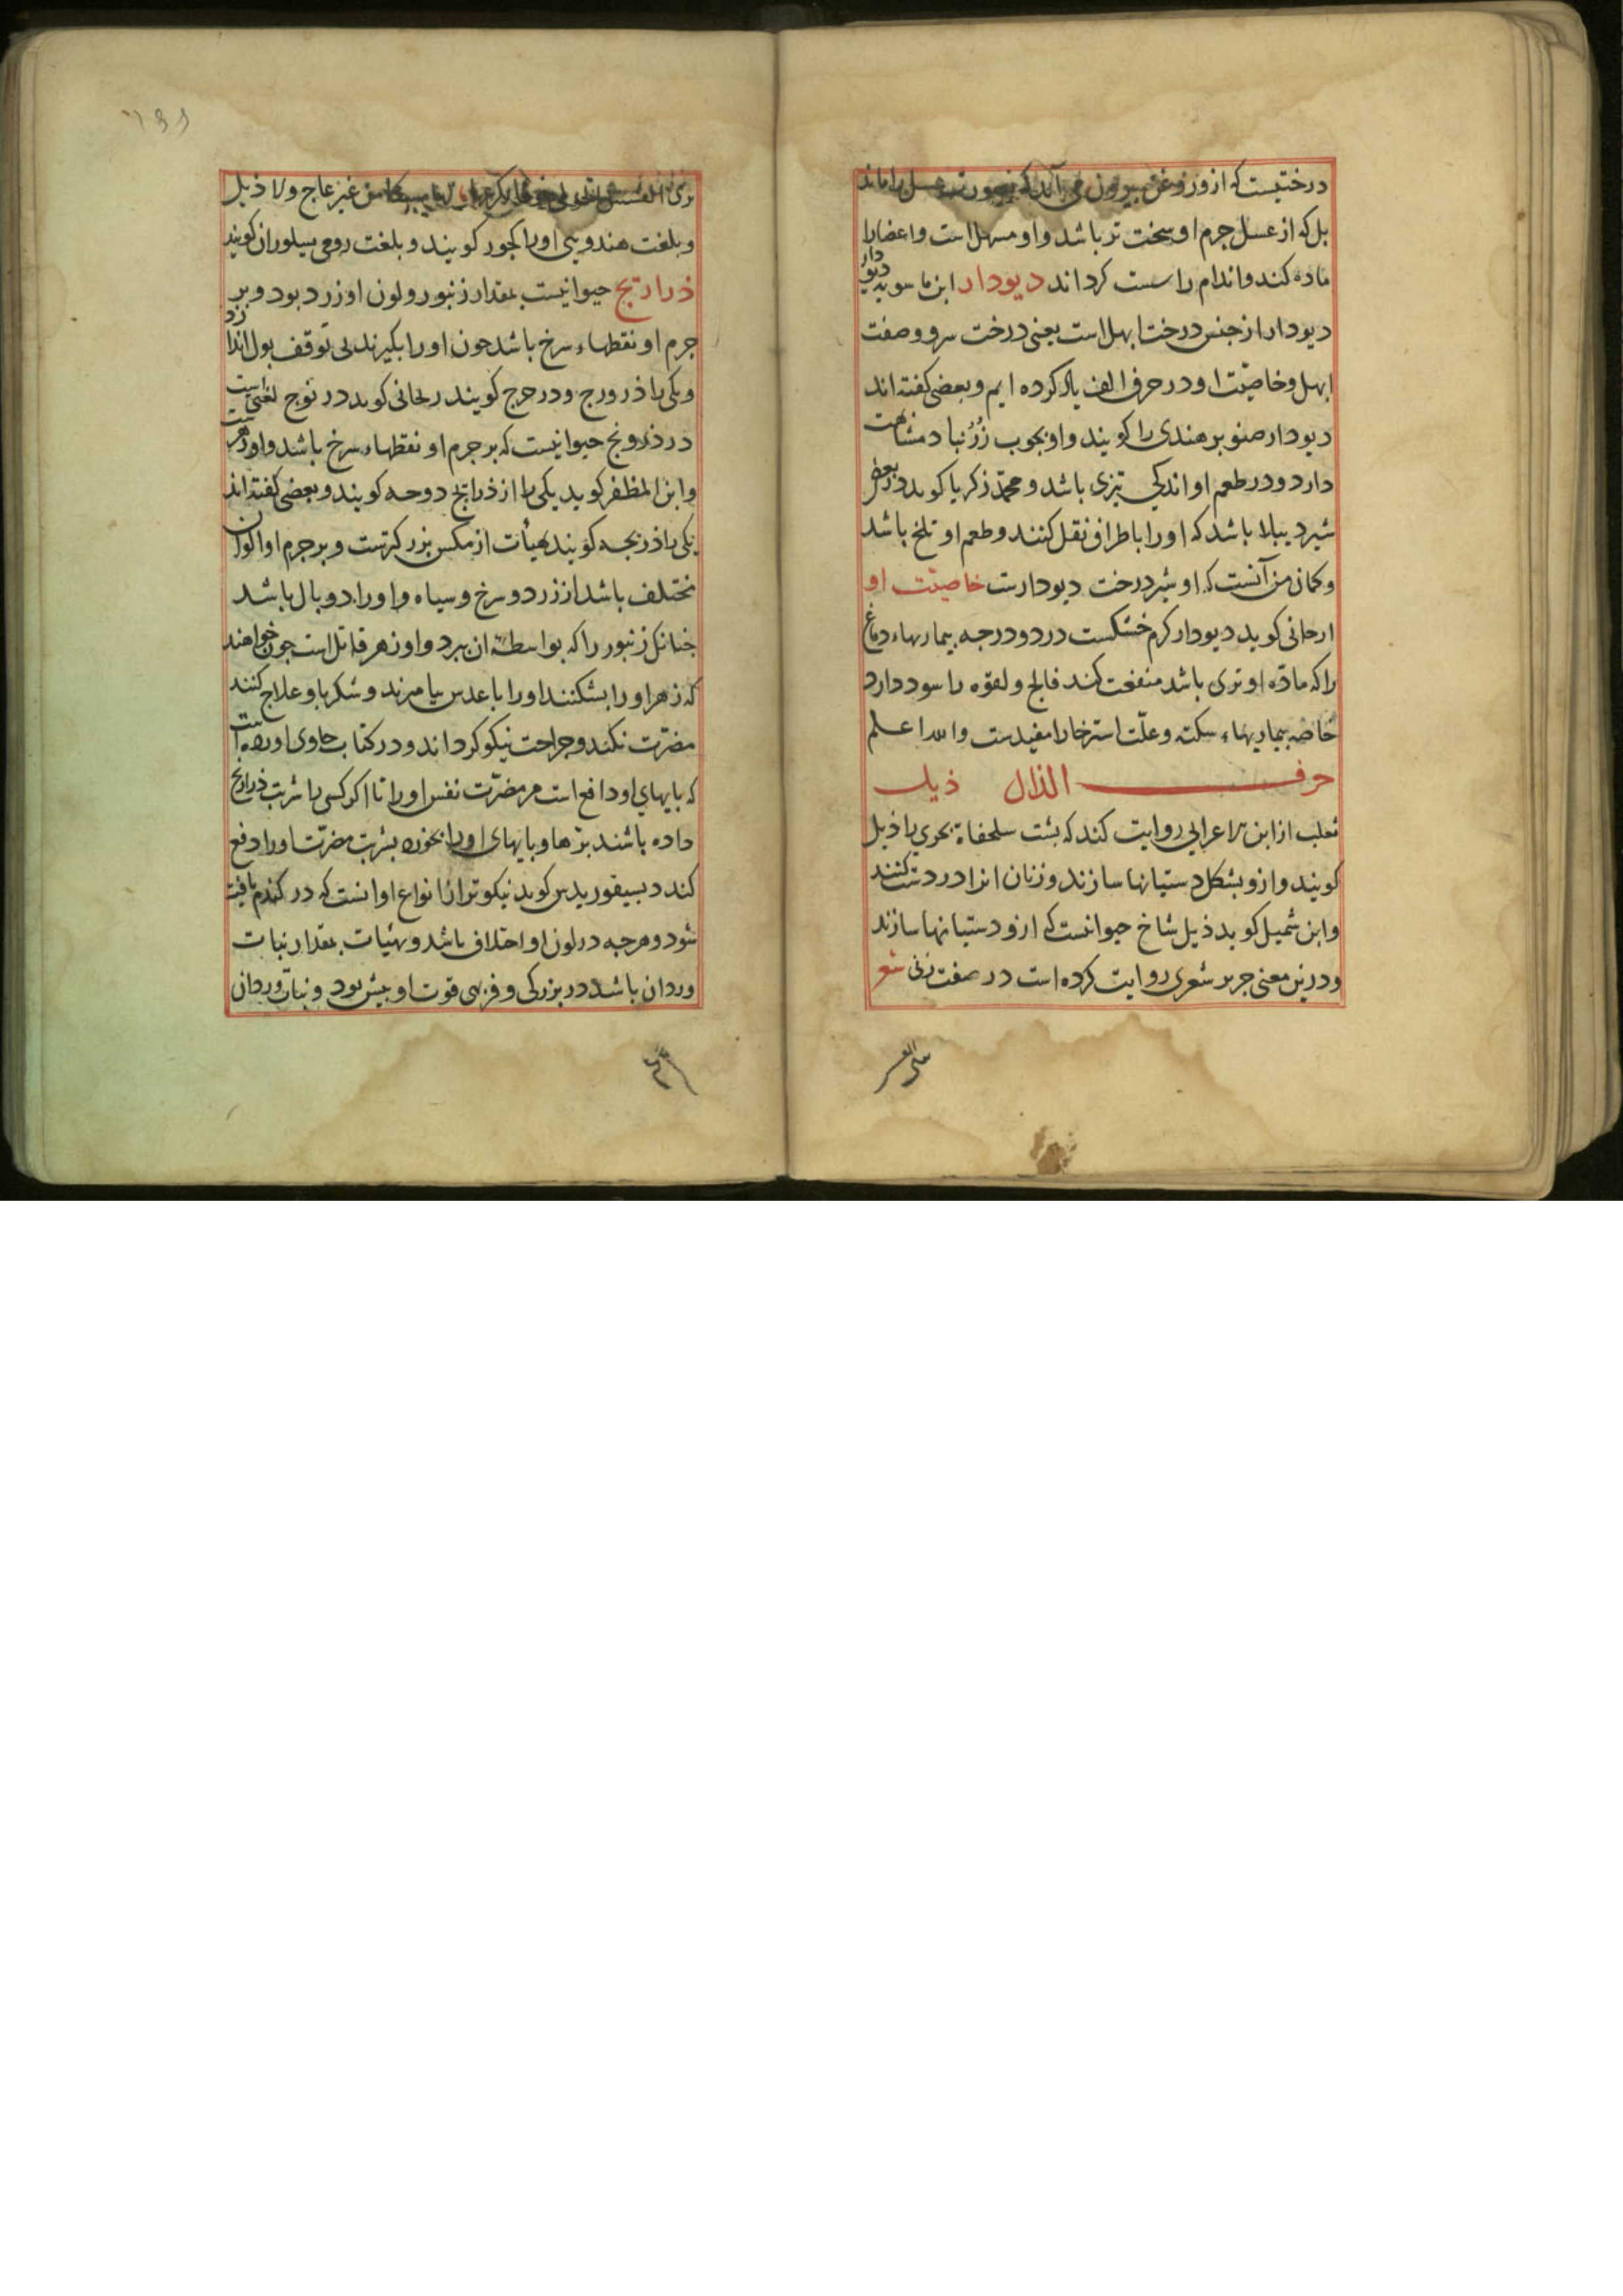 درختیست که ازو روغن بیرون می آید که بصورت عسل را ماند
بل که از عسل جرم او سخت تر باشد واو مسهل است واعضارا
ماده کند واندام را سست کرداند دیودار ابن ماسویه دیو دار
دیودار از جنس درخت ابهل است یعنی درخت سرو وصفت
ابهل وخاصیت او در حرف الف یاد کرده ایم وبعضی کفته اند
دیودار صنوبر هندی را کویند واو بجوب زرنباد مشابهت
دارد ودر طعم او اندکی تیزی باشد ومحمد زکریا کوید در بعضی
شیر دیبلا باشد که اورا باطراف نقل کنند وطعم او تلخ باشد
وکمان من آنست که او شیر درخت دیودارست خاصیت او
ارجانی کوید دیودار کرم خشکست در دو درجه بیماریهاء دماغ
را که ماده او تری باشد منفعت کند فالج ولقوه را سود دارد
خاصه بیماریهاء سکته وعلت استرخا را مفیدست والله اعلم
حرف الذال ذیل
ثعلب از ابن اعرابی روایت کند که پشت سلحفاة بحری را ذیل
کویند وازو بشکل دستیانها سازند وزنان انرا در دست کنند
وابن شمیل کوید ذیل شاخ حیوانست که ازو دستیانها سازند
ودرین معنی جریر شعری روایت کرده است در صفت زنی شعر
تری من غیر عاج ولا ذیل
وبلغت هندویی اورا کجور کویند وبلغت رومی سیلوران کویند
ذراریح حیوانیست بمقدار زنبور ولون او زرد بود وبر
جرم او نقطهاء سرخ باشد جون اورا بکیرند بی توقف بول اندازد
ویکی را ذرورح ودرحرح کویند ریحانی کوید در نوح لغتی است
در ذرونج حیوانیست که بر جرم او نقطهاء سرخ باشد واو زهرست
وابن المظفر کوید یکی را از ذراریح دوحه کویند وبعضی کفته اند
یکی را ذریحه کویند بهیأت از مکس بزرکترست وبر جرم او الوان
مختلف باشد از زرد وسرخ وسیاه واورا دو بال باشد
جنانک زنبور را که بواسطه ان ببرد واو زهر قاتل است جون خواهند
که زهر اورا بشکنند اورا با عدس بیامیزند وشکر باو علاج کنند
مضرت نکند وجراحت نیکو کرداند ودر کتاب حاوی اورده است
که بایهای او دافع است مر مضرت نفس اورا تا اکر کسی را شربت ذراریح
داده باشند برها وبایهای اورا بخورد بشربت مضرت اورا دفع
کند دیسیقوریدس کوید نیکوتر از انواع او انست که در کندم یافت
شود وهرجه در لون او اختلاف باشد وبهیات بمقدار نبات
وردان باشد در بزرکی وفربهی قوت او بیش بود ونبات وردان